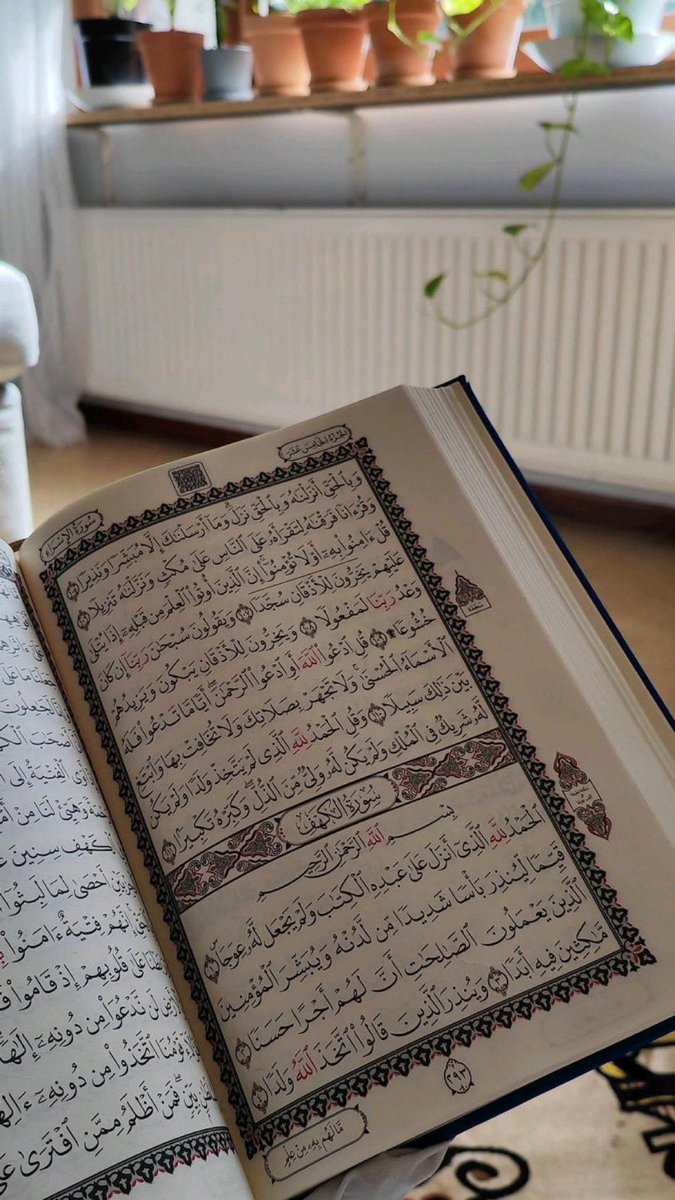 الجزء الخامس عشر
سورة الإسراء
وَبِٱلْحَقِّ أَنزَلْنَٰهُ وَبِٱلْحَقِّ نَزَلَ ۗ وَمَآ أَرْسَلْنَٰكَ إِلَّا مُبَشِّرًا وَنَذِيرًا ١٠٥
وَقُرْءَانًا فَرَقْنَٰهُ لِتَقْرَأَهُۥ عَلَى ٱلنَّاسِ عَلَىٰ مُكْثٍ وَنَزَّلْنَٰهُ تَنزِيلًا ١٠٦
قُلْ ءَامِنُوا۟ بِهِۦٓ أَوْ لَا تُؤْمِنُوٓا۟ ۚ إِنَّ ٱلَّذِينَ أُوتُوا۟ ٱلْعِلْمَ مِن قَبْلِهِۦٓ إِذَا يُتْلَىٰ
عَلَيْهِمْ يَخِرُّونَ لِلْأَذْقَانِ سُجَّدًا ١٠٧ وَيَقُولُونَ سُبْحَٰنَ رَبِّنَآ إِن كَانَ
وَعْدُ رَبِّنَا لَمَفْعُولًا ١٠٨ وَيَخِرُّونَ لِلْأَذْقَانِ يَبْكُونَ وَيَزِيدُهُمْ
خُشُوعًا ۩ ١٠٩ قُلِ ٱدْعُوا۟ ٱللَّهَ أَوِ ٱدْعُوا۟ ٱلرَّحْمَٰنَ ۖ أَيًّا مَّا تَدْعُوا۟ فَلَهُ
ٱلْأَسْمَآءُ ٱلْحُسْنَىٰ ۚ وَلَا تَجْهَرْ بِصَلَاتِكَ وَلَا تُخَافِتْ بِهَا وَٱبْتَغِ
بَيْنَ ذَٰلِكَ سَبِيلًا ١١٠ وَقُلِ ٱلْحَمْدُ لِلَّهِ ٱلَّذِى لَمْ يَتَّخِذْ وَلَدًا وَلَمْ يَكُن
لَّهُۥ شَرِيكٌ فِى ٱلْمُلْكِ وَلَمْ يَكُن لَّهُۥ وَلِىٌّ مِّنَ ٱلذُّلِّ ۖ وَكَبِّرْهُ تَكْبِيرًۢا ١١١
سُورَةُ الكَهْفِ
بِسْمِ ٱللَّهِ ٱلرَّحْمَٰنِ ٱلرَّحِيمِ
ٱلْحَمْدُ لِلَّهِ ٱلَّذِىٓ أَنزَلَ عَلَىٰ عَبْدِهِ ٱلْكِتَٰبَ وَلَمْ يَجْعَل لَّهُۥ عِوَجَا ۜ ١
قَيِّمًا لِّيُنذِرَ بَأْسًا شَدِيدًا مِّن لَّدُنْهُ وَيُبَشِّرَ ٱلْمُؤْمِنِينَ
ٱلَّذِينَ يَعْمَلُونَ ٱلصَّٰلِحَٰتِ أَنَّ لَهُمْ أَجْرًا حَسَنًا ٢
مَّٰكِثِينَ فِيهِ أَبَدًا ٣ وَيُنذِرَ ٱلَّذِينَ قَالُوا۟ ٱتَّخَذَ ٱللَّهُ وَلَدًا ٤
٢٩٣
مَّا لَهُم بِهِۦ مِنْ عِلْمٍ
ٱلْفِتْيَةُ إِلَى
لِمَا لَبِثُوٓا۟
إِنَّهُمْ فِتْيَةٌ ءَامَنُوا۟
عَلَىٰ قُلُوبِهِمْ إِذْ قَامُوا۟
لَن نَّدْعُوَا۟ مِن دُونِهِۦٓ إِلَٰهًا
قَوْمُنَا ٱتَّخَذُوا۟ مِن دُونِهِۦٓ
فَمَنْ أَظْلَمُ مِمَّنِ ٱفْتَرَىٰ